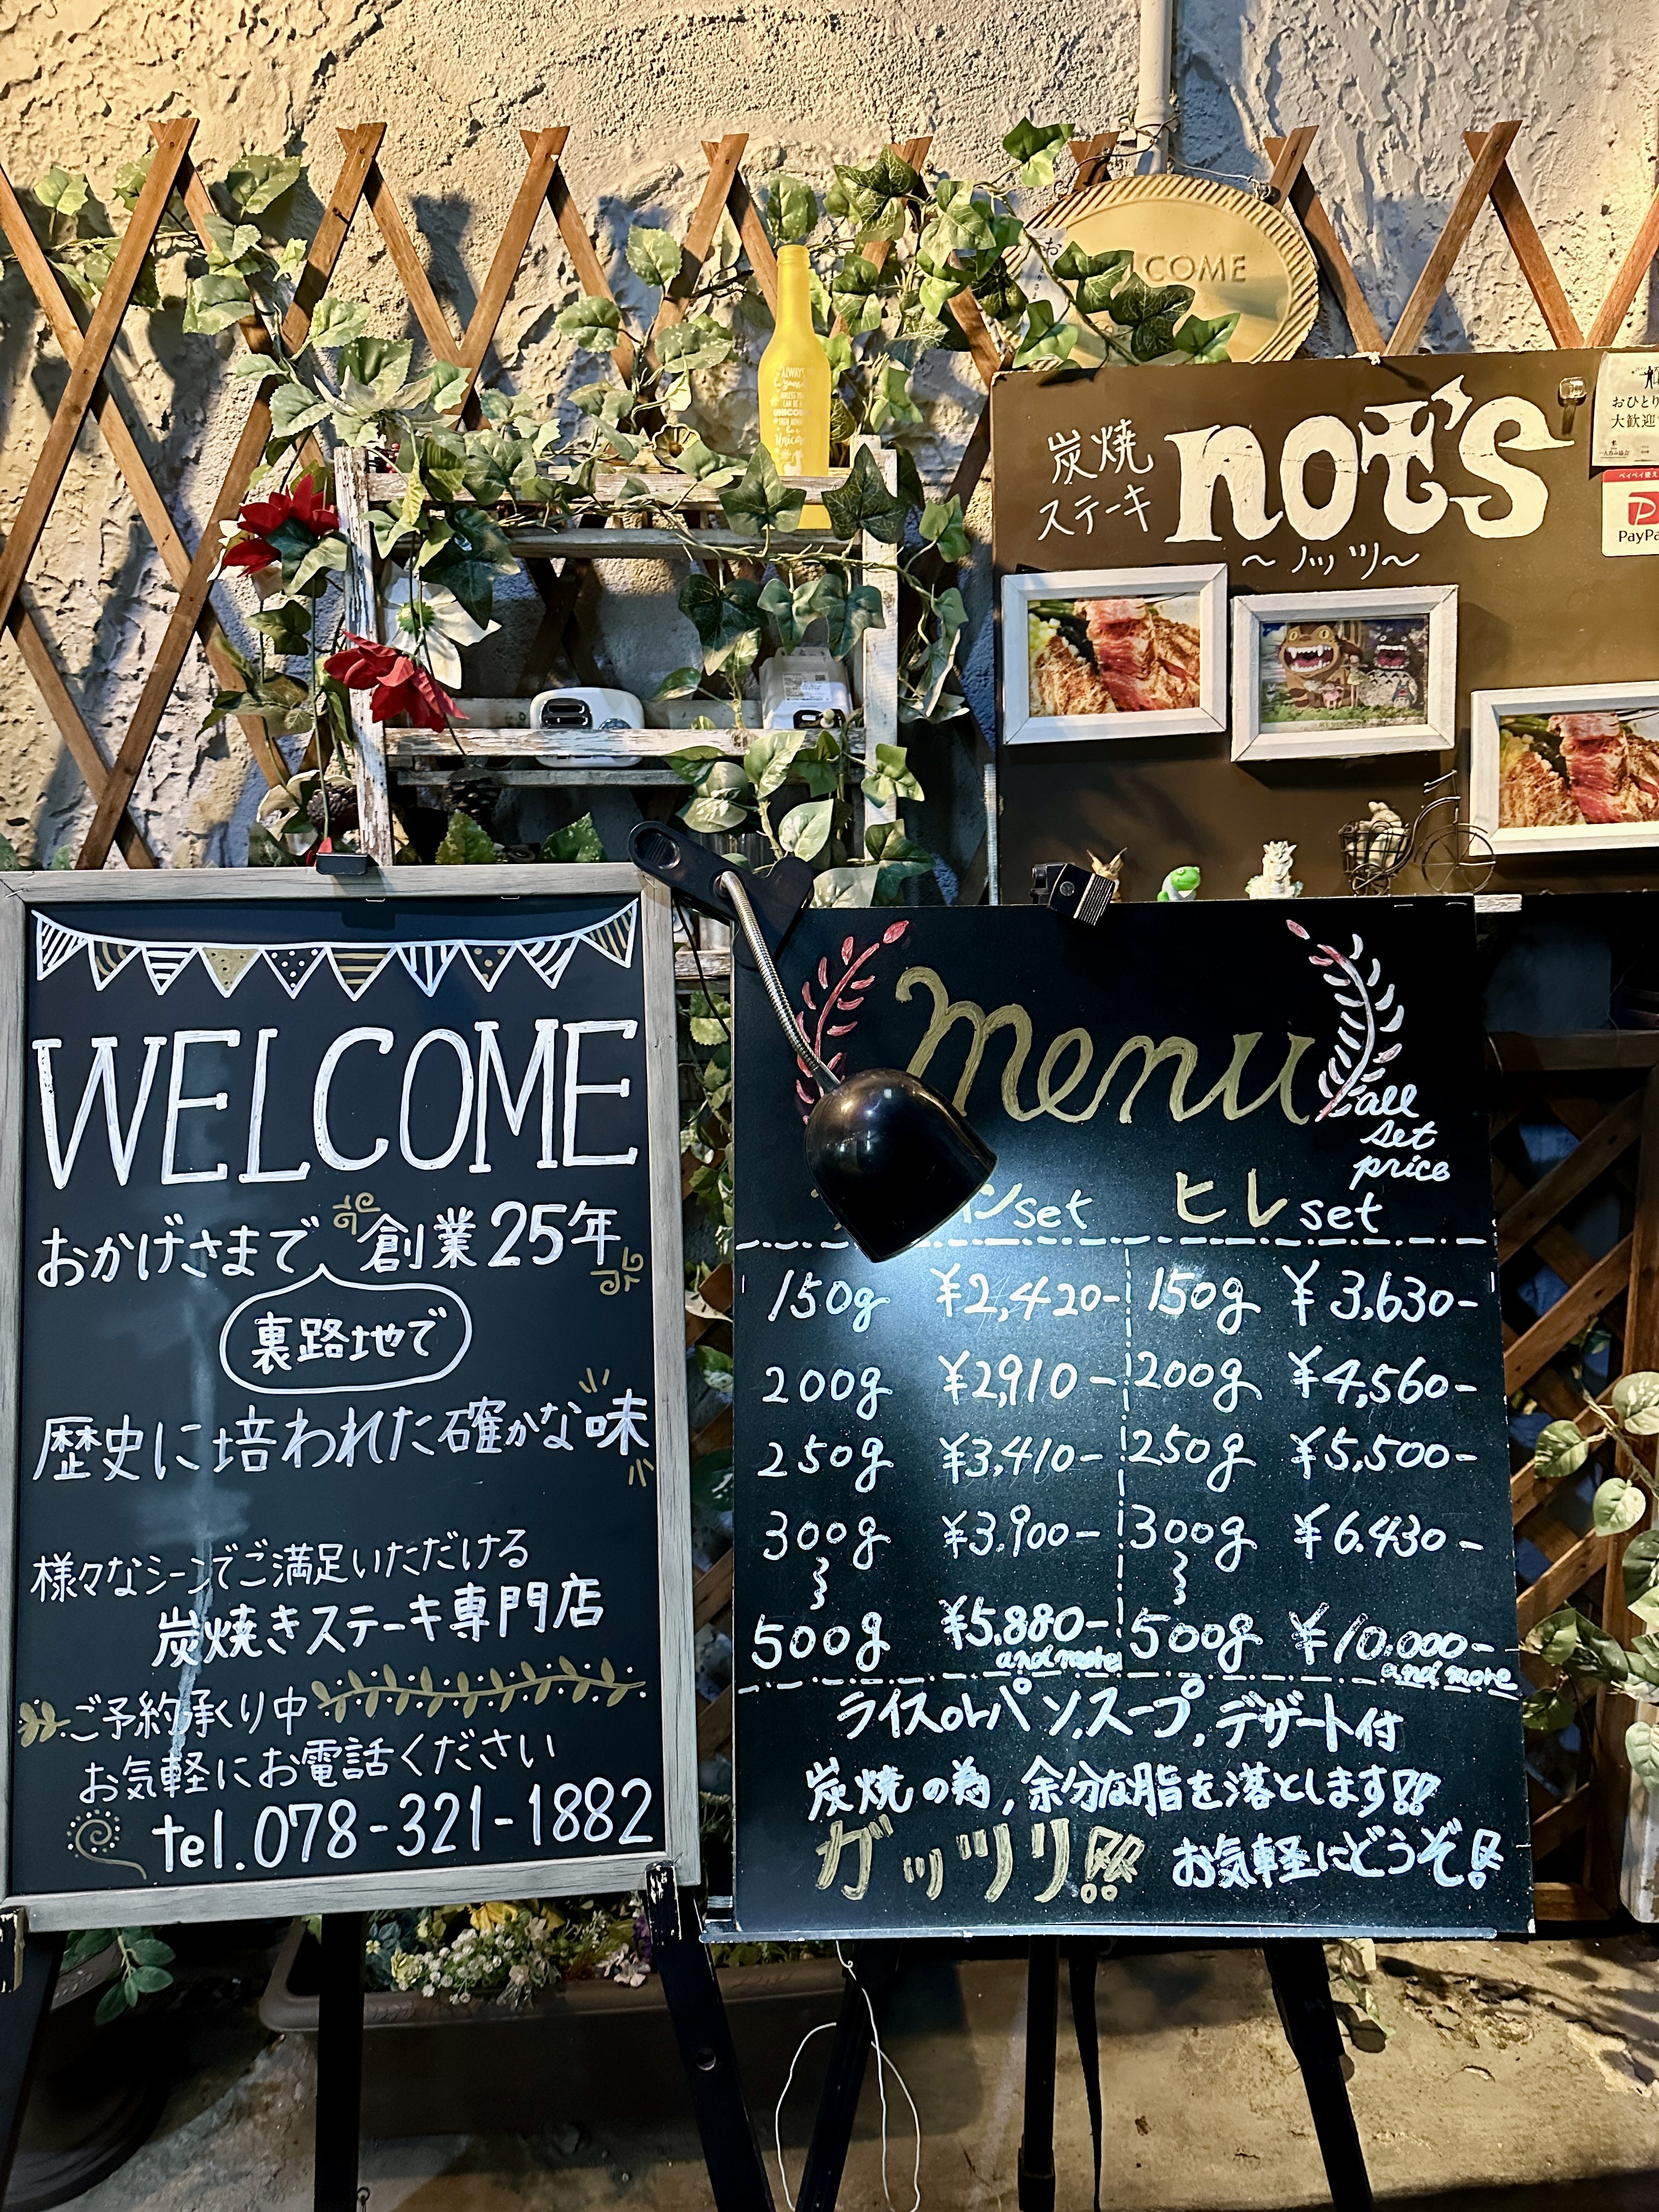 COME
炭焼
ステーキ
not's
〜ノッツ〜
おひとり
大歓迎
PayPa
ALWAYS
WELCOME
おかげさまで 創業25年
裏路地で
歴史に培われた確かな味
様々なシーンでご満足いただける
炭焼きステーキ専門店
ご予約承り中
お気軽にお電話ください
tel.078-321-1882
menu
all
set
price
ンset ヒレset
150g ¥2,420- 150g ¥3,630-
200g ¥2,910- 200g ¥4,560-
250g ¥3,410- 250g ¥5,500-
300g ¥3,900- 300g ¥6.430-
500g ¥5.880- 500g ¥10.000-
and more and more
ライスorパン,スープ,デザート付
炭焼の為,余分な脂を落とします!!
ガッツリ!! お気軽にどうぞ!